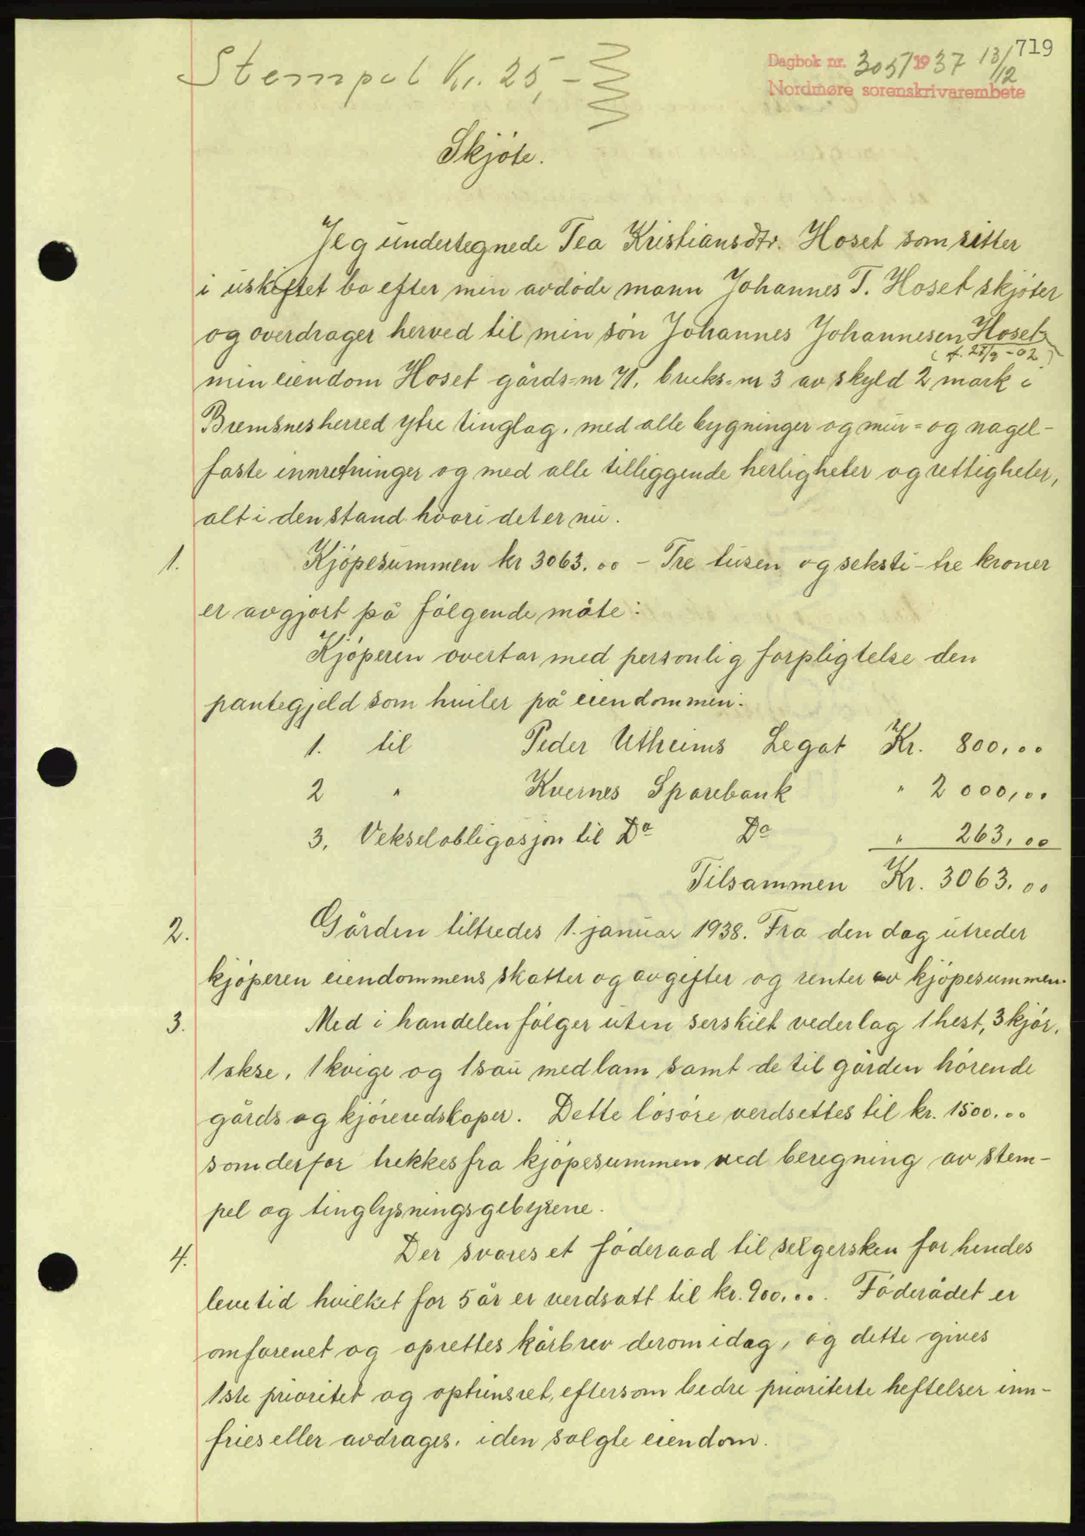 719
Stempel Kr. 25,-
Dagbok nr. 3057 1937 13/12
Nordmøre sorenskrivarembete
Skjöte.
Jeg undertegnede Tea Kristiansdtr. Hoset som sitter
i uskiftet bo efter min avdöde mann Johannes T. Hoset skjöter
og overdrager herved til min sön Johannes Johannesen Hoset
(f. 25/3-02)
min eiendom Hoset gårds-nr 71, bruks-nr 3 av skyld 2 mark i
Bremsnes herred ytre tinglag, med alle bygninger og mur- og nagel-
faste innretninger og med alle tilliggende herligheter og rettigheter,
alt i den stand hvori det er nu.
1. Kjöpesummen kr 3063.00 - Tre tusen og seksti-tre kroner
er avgjort på fölgende måte:
Kjöperen overtar med personlig forpligtelse den
pantegjeld som hviler på eiendommen:
1. til Peder Utheims Legat Kr. 800,00
2 " Kvernes Sparebank " 2000,00
3. Vekselobligasjon til Do Do " 263,00
Tilsammen Kr. 3063.00
2. Gården tiltredes 1. januar 1938. Fra den dag utreder
kjöperen eiendommens skatter og avgifter og renter av kjöpesummen.
3. Med i handelen fölger uten serskilt vederlag 1 hest, 3 kjör,
1 okse, 1 kvige og 1 sau med lam samt de til gården hörende
gårds og kjöreredskaper. Dette lösöre verdsettes til kr. 1500.00
som derfor trekkes fra kjöpesummen ved beregning av stem-
pel og tinglysningsgebyrene.
4. Der svares et föderaad til selgersken for hendes
levetid hvilket for 5 år er verdsatt til kr. 900,00. Föderådet er
omforenet og oprettes kårbrev derom idag, og dette gives
1ste prioritet og optrinsret, eftersom bedre prioriterte heftelser inn-
fries eller avdrages, i den solgte eiendom.